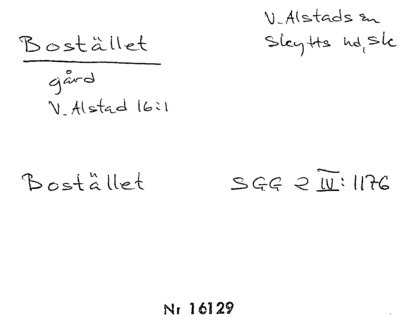 V. Alstads sn
Bostället
Skytts hd, Sk
gård
V. Alstad 16:1
Bostället SGG 2 IV: 1176
Nr 16129